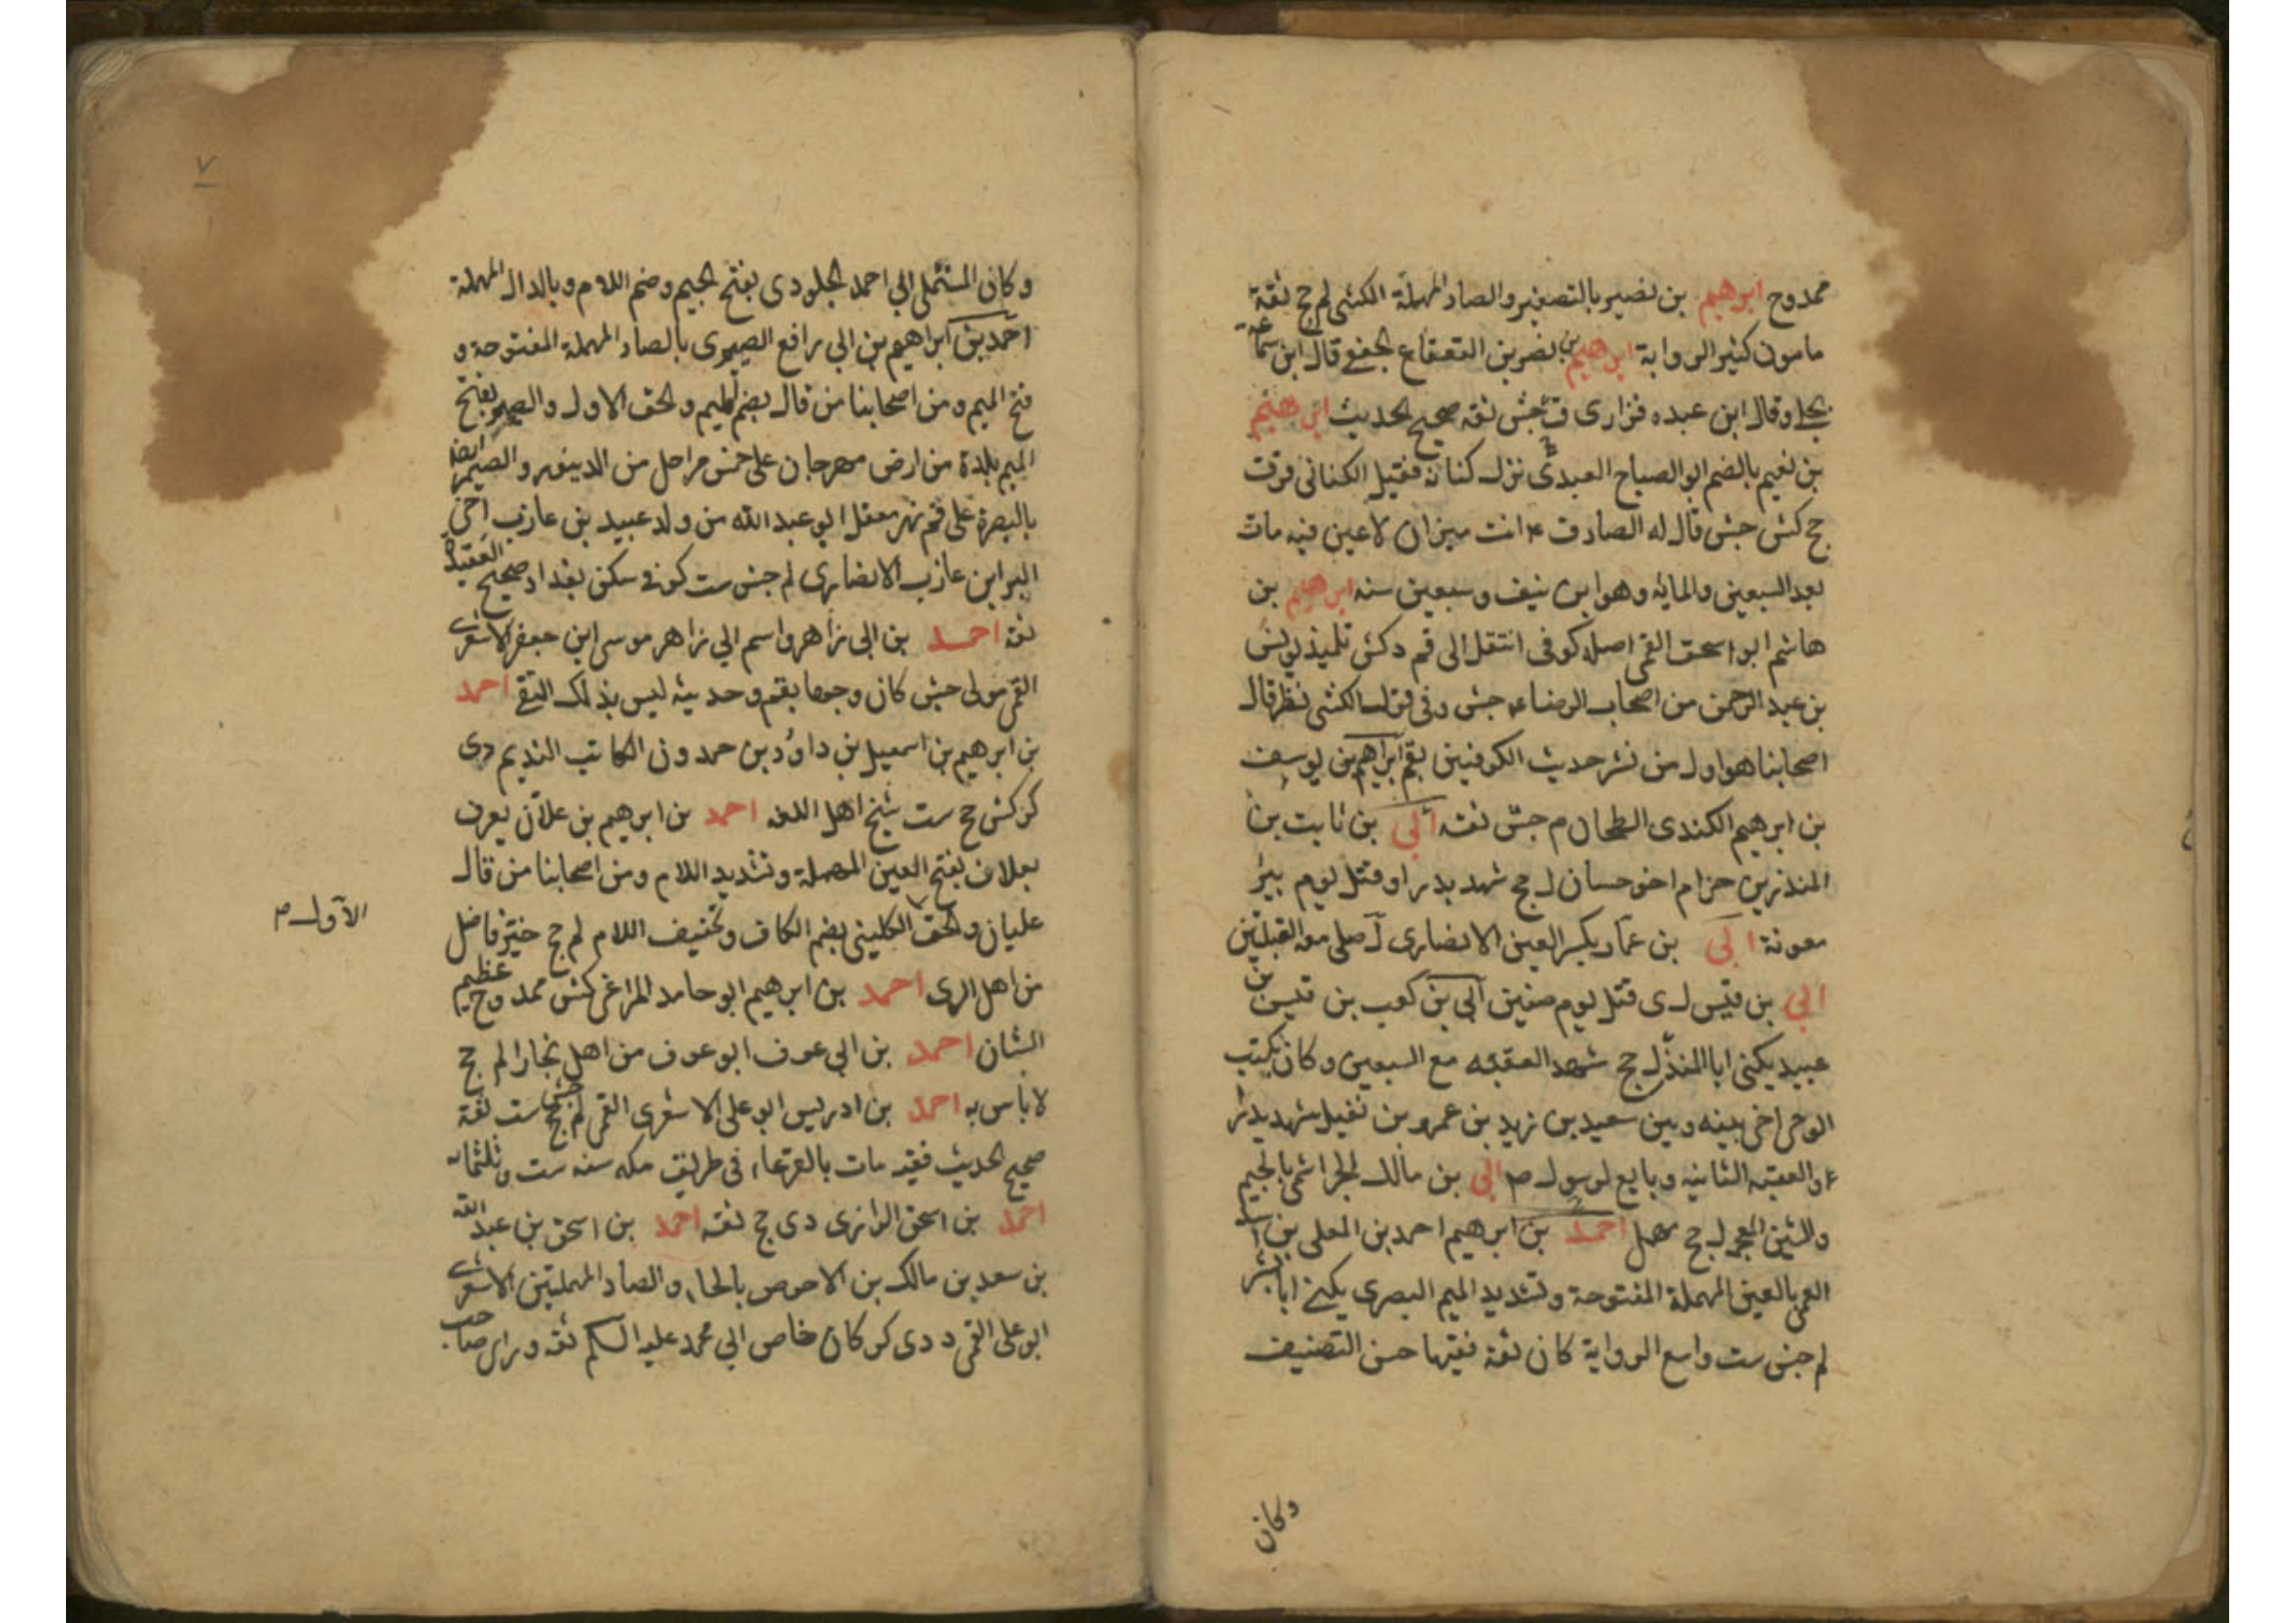 ممدوح ابرهيم بن نصير بالتصغير والصاد المهملة الكشى لم جج ثقة
مامون كثير الرواية ابرهيم بن نصر بن القعقاع الجعفى قال ابن سماعة
بجلى وقال ابن عبده فزارى ق جش ثقه صحيح الحديث ابرهيم
بن نعيم بالضم ابو الصباح العبدى نزل كنانه فقيل الكنانى قرقت
جج كش جش قال له الصادق ع انت ميزان لا عين فيه مات
بعد السبعين والمايه وهو ابن نيف وسبعين سنه ابرهيم بن
هاشم ابو اسحق القمى اصله كوفى انتقل الى قم دكش تلميذ يونس
بن عبد الرحمن من اصحاب الرضاء ع جش وفى قول الكشى نظر قال
اصحابنا هو اول من نشر حديث الكوفيين بقم ابراهيم بن يوسف
بن ابرهيم الكندى الطحان م جش ثقه أبي بن ثابت بن
المنذر بن حزام اخو حسان ل جج شهد بدرا وقتل يوم بير
معونة ابي بن عمار بكسر العين الانصارى ل صلى معه القبلتين
ابي بن قيس ل ى قتل يوم صفين ابي بن كعب بن قيس بن
عبيد يكنى ابا المنذر ل جج شهد العقبه مع السبعين وكان يكتب
الوحى اخى بينه وبين سعيد بن زيد بن عمرو بن نفيل شهد بدرا
و العقبه الثانيه وبايع لرسول ص ابي بن مالك الجراشى بالجيم
والشين المعجم ل جج مهمل احمد بن ابرهيم احمد بن المعلى بن اسد
العمى بالعين المهملة المفتوحة وتشديد الميم البصرى يكنى ابا بشر
لم جش ست واسع الرواية كان ثقة فقيها حسن التصنيف
وكان
٧
وكان المستملى ابي احمد الجلودى بفتح الجيم وضم اللام وبالدال المهملة
احمد بن ابراهيم بن ابي رافع الصيمرى بالصاد المهملة المفتوحة و
فتح الميم ومن اصحابنا من قال بضم الميم والحق الاول والصيمر بفتح
الميم بلدة من ارض مهرجان على خمس مراحل من الدينور والصيمر ايضا
بالبصرة على فم نهر معقل ابو عبد الله من ولد عبيد بن عازب اخى
البرا ابن عازب الانصارى لم جش ست كوفى سكن بغداد صحيح العقيدة
ثقه احمد بن ابي زاهر واسم ابي زاهر موسى ابن جعفر الاشعرى
القمى مولى جش كان وجها بقم وحديثه ليس بذلك النقى احمد
بن ابرهيم بن اسمعيل بن داؤد بن حمدون الكاتب النديم دى
كر كش جج ست شيخ اهل اللغه احمد بن ابرهيم بن علان يعرف
بعلان بفتح العين المهملة وتشديد اللام ومن اصحابنا من قال
عليان والحق الكلينى بضم الكاف وتخفيف اللام لم جج خير فاضل
الاول ص
من اهل الرى احمد بن ابرهيم ابو حامد المراغى كش ممدوح عظيم
الشان احمد بن ابي عوف ابو عوف من اهل بخارا لم جج
لا باس به احمد بن ادريس ابو على الاشعرى القمى لم جج جش ست ثقة
صحيح الحديث فقيه مات بالقرعاء فى طريق مكه سنه ست وثلثماة
احمد بن اسحق الرازى دى جج ثقه احمد بن اسحق بن عبد الله
بن سعد بن مالك بن الاحوص بالحاء والصاد المهملتين الاشعرى
ابو على القمى د دى كر كان خاص ابي محمد عليه السلم ثقه وراى صاحب